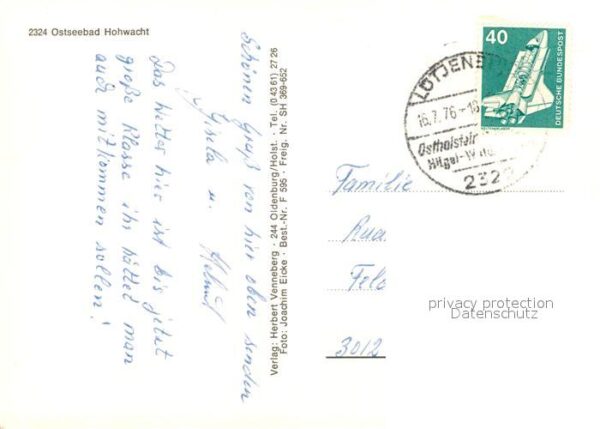 2324 Ostseebad Hohwacht
Schönen Gruß von hier oben senden
Gisela u. Helmut
Das Wetter hier ist bis jetzt
große Klasse ihr hättet man
auch mitkommen sollen!
Verlag: Herbert Venneberg · 244 Oldenburg/Holst. · Tel. (0 43 61) 27 26
Foto: Joachim Eicke · Best.-Nr. F 595 · Freig. Nr. SH 369-652
40
DEUTSCHE BUNDESPOST
LÜTJENB
16.7.76-18
Ostholstein
Hügel-W
232
Familie
Rud
Feld
3012
privacy protection
Datenschutz